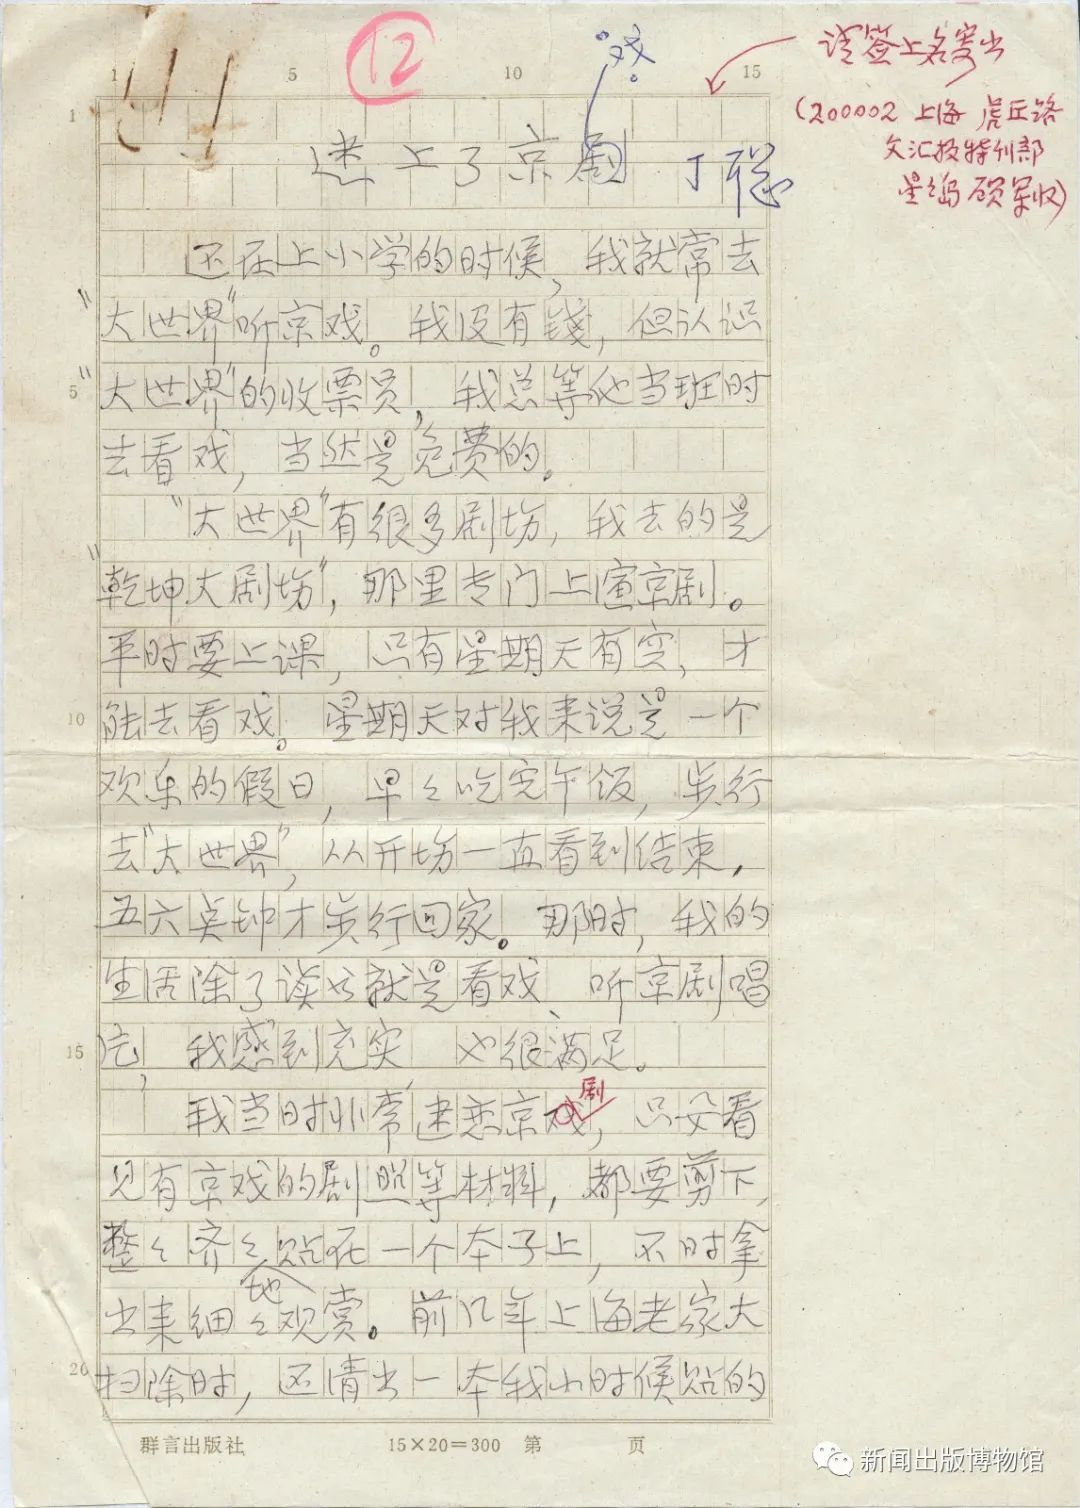 1 5 10 15
12
"戏。
请签上名寄出
(200002 上海 虎丘路
文汇报特刊部
星岛 收)
1
迷上了京剧 丁聪
还在上小学的时候，我就常去
"大世界"听京戏。我没有钱，但认识
5
"大世界"的收票员，我总等他当班时
去看戏，当然是免费的。
"大世界"有很多剧场，我去的是
"乾坤大剧场"，那里专门上演京剧。
平时要上课，只有星期天有空，才
10
能去看戏。星期天对我来说是一个
欢乐的假日，早々吃完午饭，步行
去"大世界"，从开场一直看到结束，
五六点钟才步行回家。那时，我的
生活除了读书就是看戏、听京剧唱
15
片，我感到充实，也很满足。
剧
我当时非常迷恋京戏，只要看
见有京戏的剧照等材料，都要剪下，
整々齐々贴在一个本子上，不时拿
地
出来细々观赏。前几年上海老家大
20
扫除时，还清出一本我小时候贴的
群言出版社 15×20=300 第 页
新闻出版博物馆